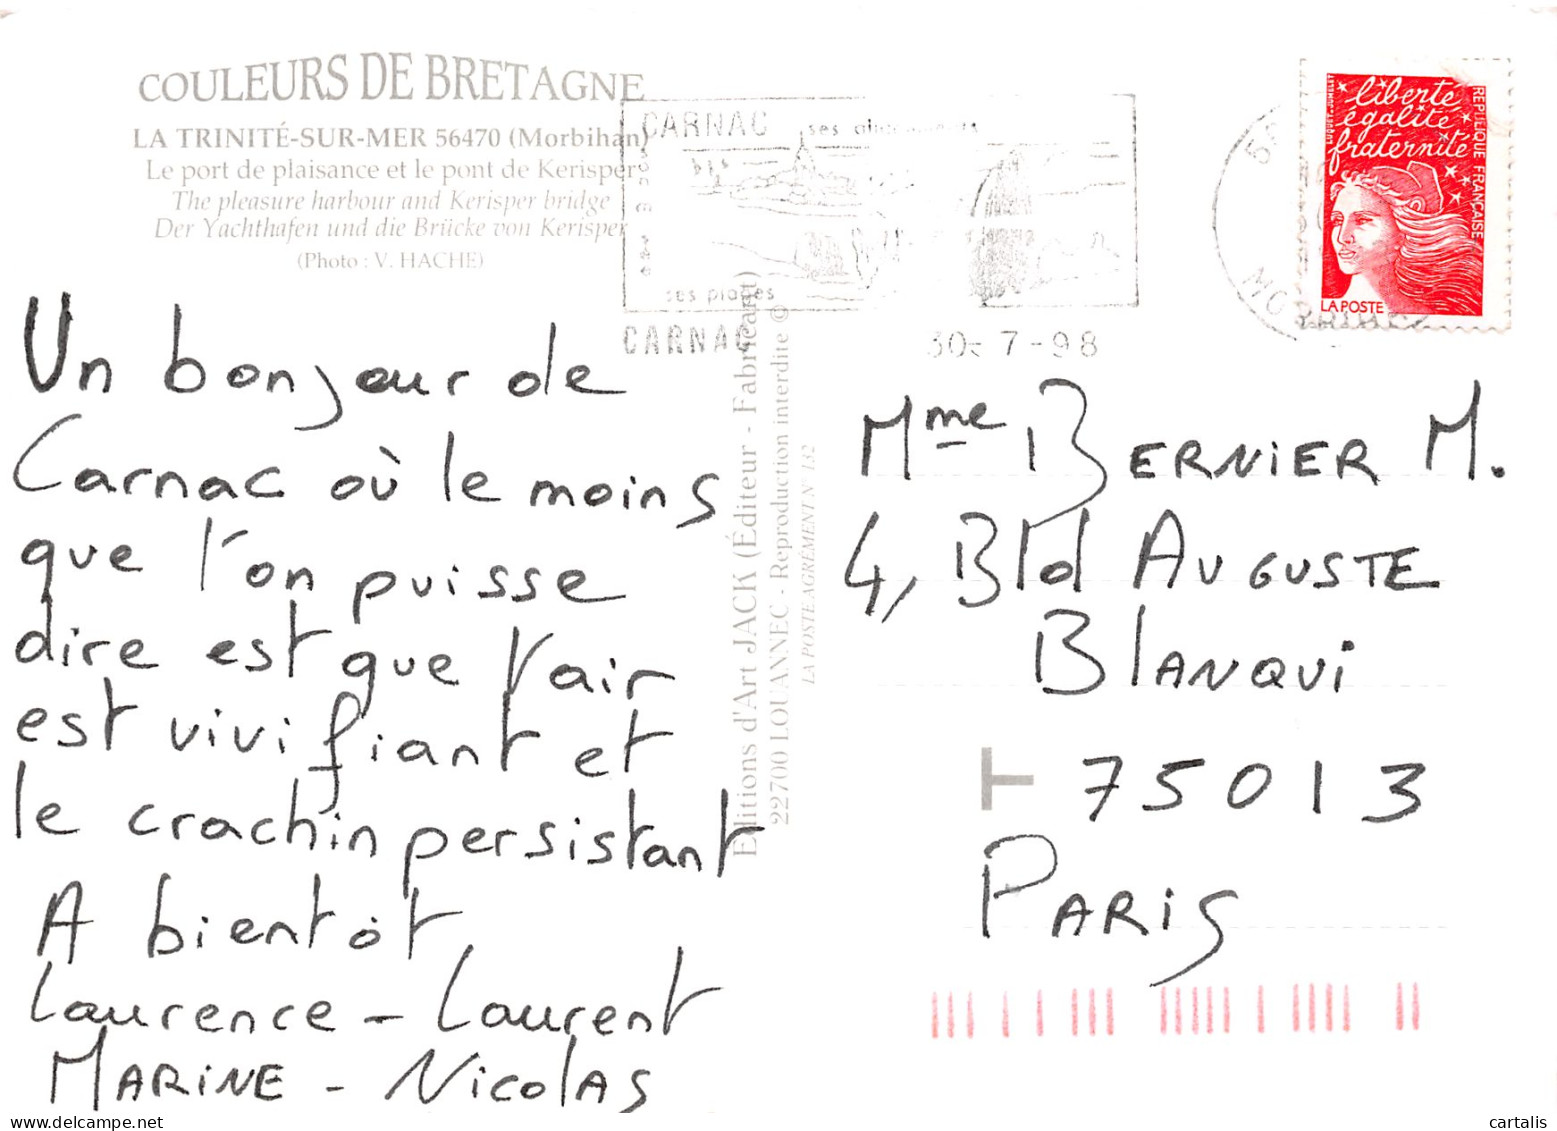 COULEURS DE BRETAGNE
LA TRINITÉ-SUR-MER 56470 (Morbihan)
Le port de plaisance et le pont de Kerisper
The pleasure harbour and Kerisper bridge
Der Yachthafen und die Brücke von Kerisper
(Photo : V. HACHE)
CARNAC ses alignements
ses plages
CARNAC
30-7-98
liberté
égalité
fraternité
RÉPUBLIQUE FRANÇAISE
LA POSTE
Un bonjour de
Carnac où le moins
que l'on puisse
dire est que l'air
est vivifiant et
le crachin persistant
A bientôt
Laurence - Laurent
MARINE - NICOLAS
Editions d'Art JACK (Éditeur - Fabricant)
22700 LOUANNEC - Reproduction interdite ©
LA POSTE AGRÉMENT N° 132
Mme BERNIER M.
4, Bld AUGUSTE
BLANQUI
75013
PARIS
cartalis